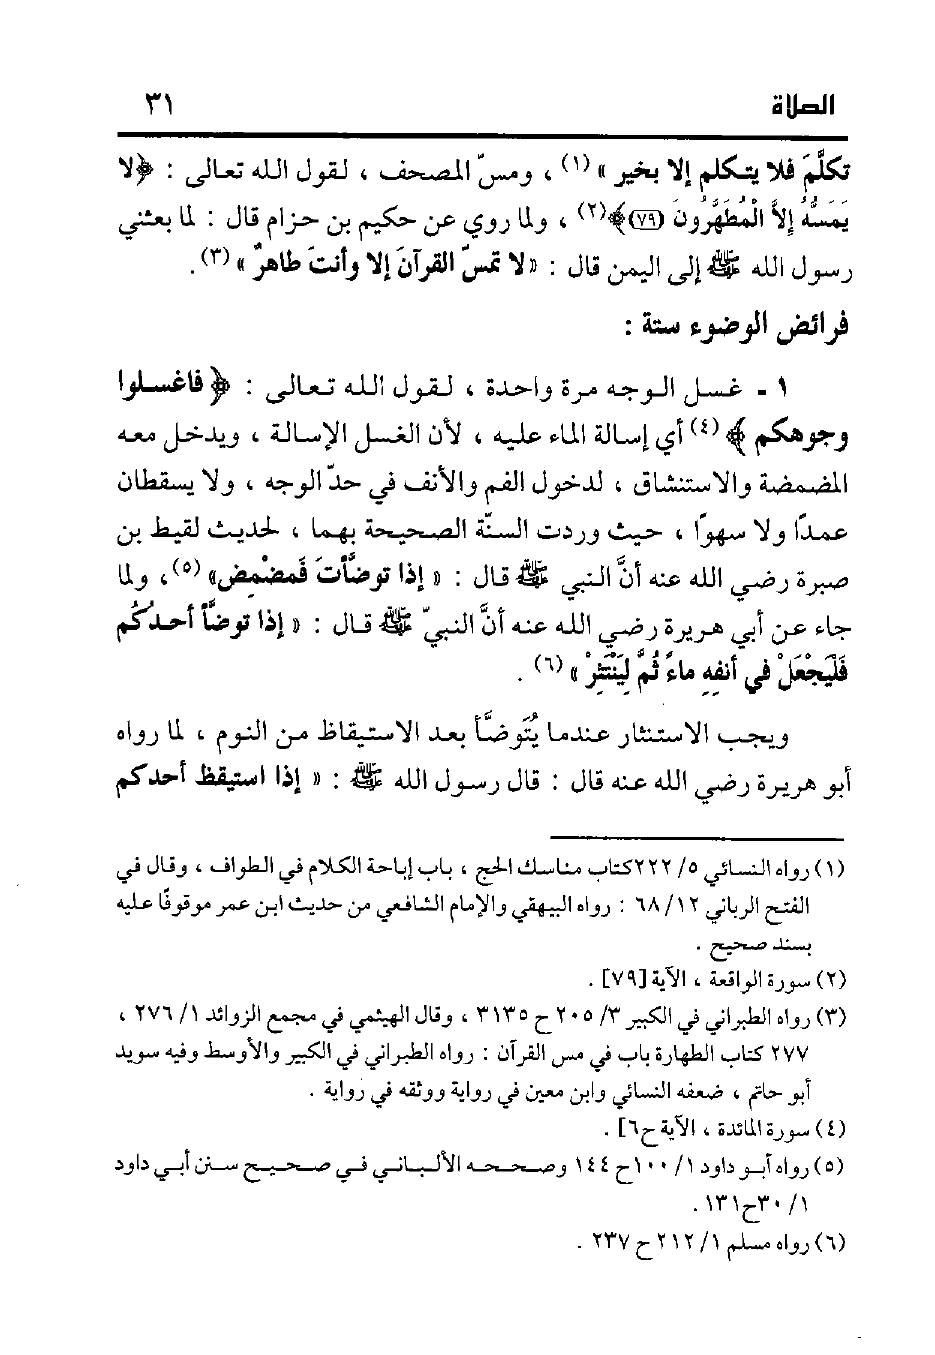 الصلاة ٣١
تكلَّمَ فلا يتكلم إلا بخير » (١) ، ومسّ المصحف ، لقول الله تعالى : ﴿لا
يَمَسُّهُ إِلاَّ الْمُطَهَّرُونَ (٧٩)﴾(٢) ، ولما روي عن حكيم بن حزام قال : لما بعثني
رسول الله ﷺ إلى اليمن قال : « لا تمسّ القرآنَ إلا وأنتَ طاهرٌ » (٣).
فرائض الوضوء ستة :
١ - غسل الوجه مرة واحدة ، لقول الله تعالى : ﴿ فاغسلوا
وجوهكم ﴾ (٤) أي إسالة الماء عليه ، لأن الغسل الإسالة ، ويدخل معه
المضمضة والاستنشاق ، لدخول الفم والأنف في حدّ الوجه ، ولا يسقطان
عمدًا ولا سهوًا ، حيث وردت السنّة الصحيحة بهما ، لحديث لقيط بن
صبرة رضي الله عنه أنَّ النبي ﷺ قال : « إذا توضَّأتَ فَمضْمِضْ» (٥)، ولما
جاء عن أبي هريرة رضي الله عنه أنَّ النبيّ ﷺ قال : « إذا توضَّأ أحدُكُم
فَلْيَجْعَلْ في أنفِهِ ماءً ثُمَّ لِيَنْتَثِرْ » (٦) .
ويجب الاستنثار عندما يُتَوضَّأ بعد الاستيقاظ من النوم ، لما رواه
أبو هريرة رضي الله عنه قال : قال رسول الله ﷺ : « إذا استيقظ أحدكم
(١) رواه النسائي ٥/ ٢٢٢كتاب مناسك الحج ، باب إباحة الكلام في الطواف ، وقال في
الفتح الرباني ١٢/ ٦٨ : رواه البيهقي والإمام الشافعي من حديث ابن عمر موقوفًا عليه
بسند صحيح .
(٢) سورة الواقعة ، الآية [٧٩] .
(٣) رواه الطبراني في الكبير ٣/ ٢٠٥ ح ٣١٣٥ ، وقال الهيثمي في مجمع الزوائد ١/ ٢٧٦ ،
٢٧٧ كتاب الطهارة باب في مس القرآن : رواه الطبراني في الكبير والأوسط وفيه سويد
أبو حاتم ، ضعفه النسائي وابن معين في رواية ووثقه في رواية .
(٤) سورة المائدة ، الآية ح٦] .
(٥) رواه أبو داود ١/ ١٠٠ح ١٤٤ وصححه الألباني في صحيح سنن أبي داود
١/ ٣٠ح١٣١ .
(٦) رواه مسلم ١/ ٢١٢ ح ٢٣٧ .